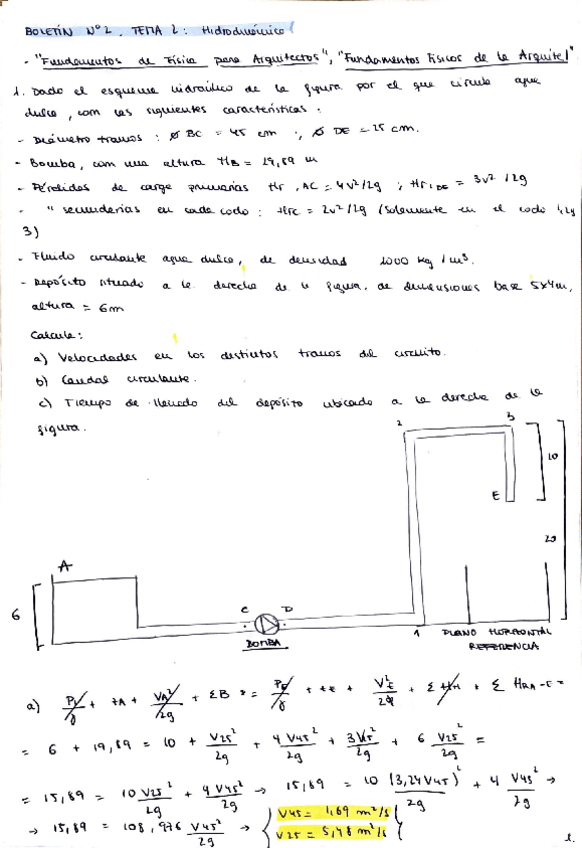 BOLETÍN Nº 2. TEMA 2: Hidrodinámica
- "Fundamentos de Física para Arquitectos", "Fundamentos Físicos de la Arquitec"
1. Dado el esquema hidraúlico de la figura por el que circula agua
dulce, con las siguientes características:
- Diámetro tramos: Ø BC = 45 cm ; Ø DE = 25 cm.
- Bomba, con una altura HB = 19,89 m
- Pérdidas de carga primarias Hr, AC = 4v²/2g ; Hr, DE = 3v²/2g
- " secundarias en cada codo: Hrc = 2v²/2g (Solamente en el codo 1,2 y
3)
- Fluido circulante agua dulce, de densidad 1000 kg/m³.
- Depósito situado a la derecha de la figura, de dimensiones base 5x4m,
altura = 6m
Calcule:
a) Velocidades en los distintos tramos del circuito.
b) Caudal circulante.
c) Tiempo de llenado del depósito ubicado a la derecha de la
figura.
2 3
10
E
20
A
6
C D
BOMBA
1 PLANO HORIZONTAL
REFERENCIA
a) P/γ + zA + VA²/2g + ΣB = PE/γ + zE + VE²/2g + Σ + Σ HRA-E =
= 6 + 19,89 = 10 + V25²/2g + 4 V45²/2g + 3V25²/2g + 6 V25²/2g =
= 15,89 = 10 V25²/2g + 4 V45²/2g → 15,89 = 10 (3,24 V45)²/2g + 4 V45²/2g →
→ 15,89 = 108,976 V45²/2g → { V45 = 1,69 m²/s
V25 = 5,48 m²/s
1.